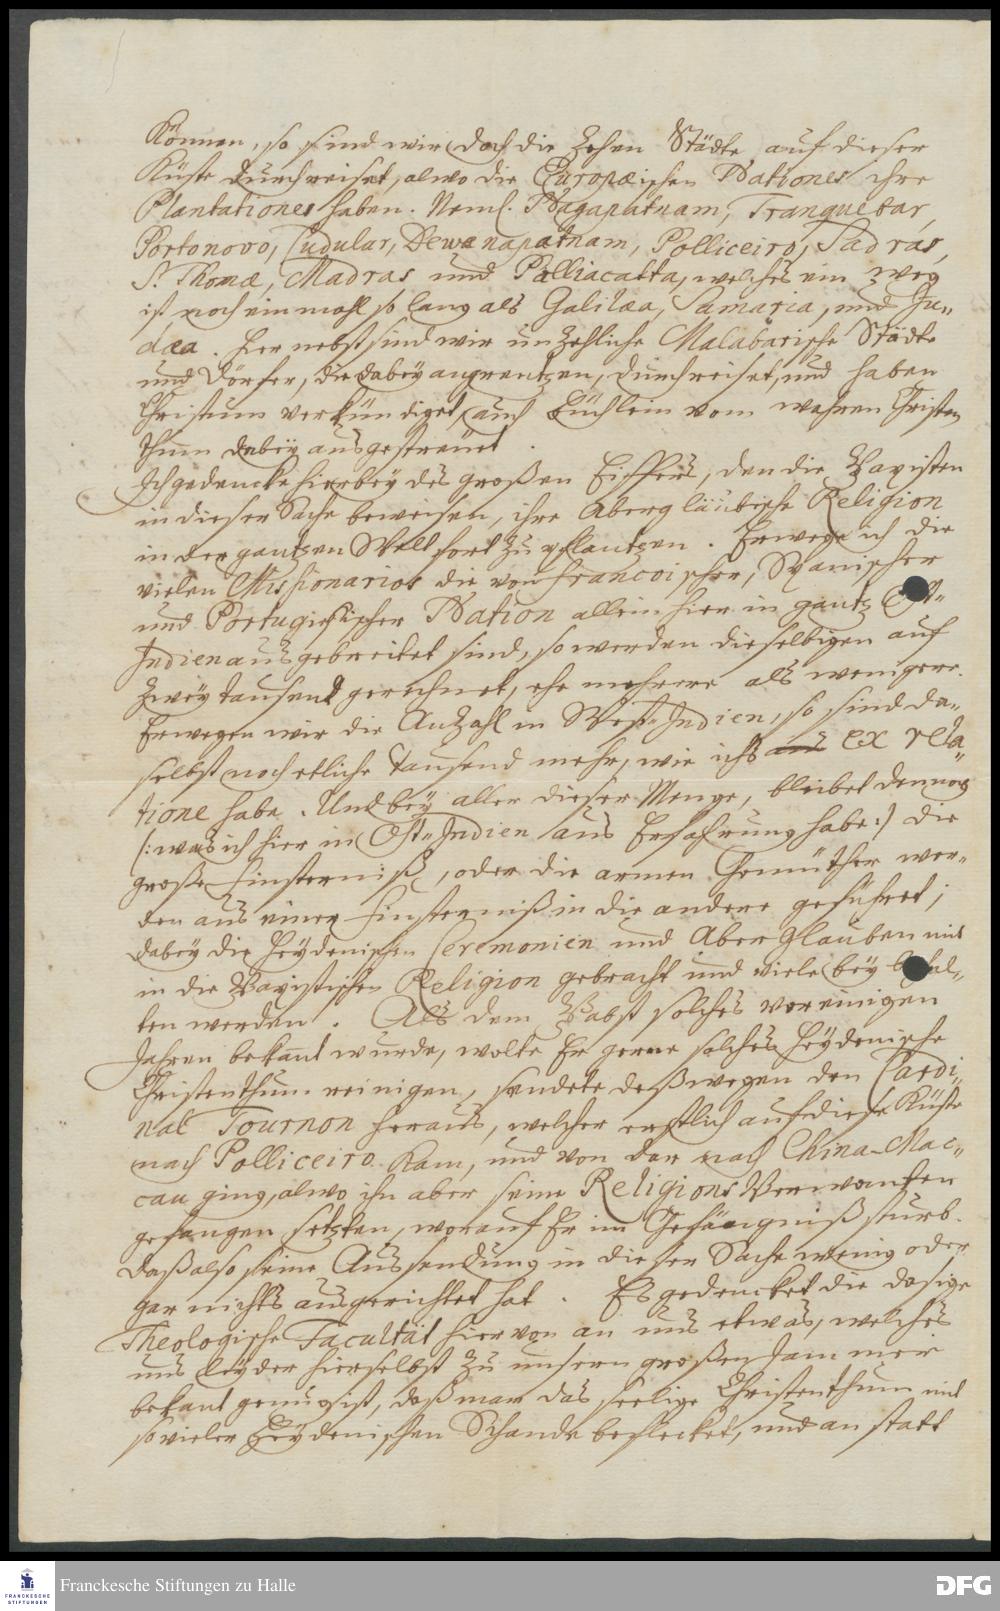 Können, so sind wir doch die Zehen Städte auf dieser
Küste durchreiset, alwo die Europæischen Nationes ihre
Plantationes haben. Neml. Nagapatnam, Tranquebar,
Portonovo, Cudulur, Dewanapatnam, Polliceiro, Sadras,
St. Thomæ, Madras und Palliacatta, welches ein weg
ist noch einmahl so lang als Galilæa, Samaria, und Ju„
dæa. Hier nebst sind wir unzehliche Malabarische Städte
und Dörfer, die dabey angrentzen, durchreiset, und haben
Christum verkündiget, auch Büchlein vom wahren Christen
thum dabey ausgestreuet.
Ich gedencke hierbey des großen Eiffers, den die Papisten
in dieser Sache beweisen, ihre Abergläubische Religion
in der gantzen Welt fort zu pflantzen. Erwege ich die
vielen Missionarios die von Francoischer, Spanischer
und Portugiesischer Nation allein hier in gantz Ost„
Indien ausgebreitet sind, so werden dieselbigen auf
Zwey tausend gerechnet, ehe mehrere als wenigere.
Erwegen wir die Anzahl in West„Indien, so sind da„
selbst noch etliche tausend mehr, wie ichs aus ex rela„
tione habe. Und bey aller dieser Menge, bleibet dennoch
(: was ich hier in Ost„Indien aus Erfahrung habe :) die
große Finsterniß, oder die armen Gemüther wer„
den aus einer Finsterniß in die andere geführet;
dabey die Heydenischen Ceremonien und Aberglauben mit
in die Papistische Religion gebracht und viele bey behal„
ten werden. Als dem Pabst solches vor einigen
Jahren bekant wurde, wolte Er gerne solches Heydenische
Christenthum reinigen, sendete deßwegen den Cardi„
nal Tournon heraus, welcher erstlich auf diese Küste
nach Polliceiro kam, und von dar nach China-Mac„
cau ging, alwo ihn aber seine Religions Verwanten
gefangen setzten, worauf Er im Gefängniß sturb.
Daß also seine Aussendung in dieser Sache wenig oder
gar nichts ausgerichtet hat. Es gedencket die dasige
Theologische Facultät hiervon an uns etwas, welches
uns leyder hierselbst zu unsern großen Jammer
bekant genug ist, daß man das seelige Christenthum mit
so vieler Heydenischen Schande beflecket, und an statt
Franckesche Stiftungen zu Halle
FRANCKESCHE
STIFTUNGEN
DFG